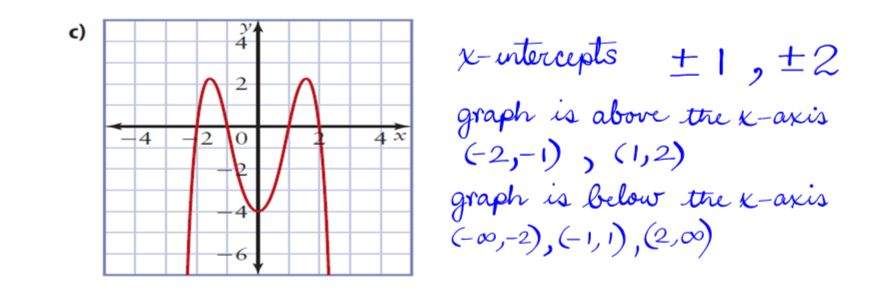 c)
y
4
2
-4 -2 0 2 4 x
-2
-4
-6
x-intercepts ±1, ±2
graph is above the x-axis
(-2,-1), (1,2)
graph is below the x-axis
(-∞,-2), (-1,1), (2,∞)